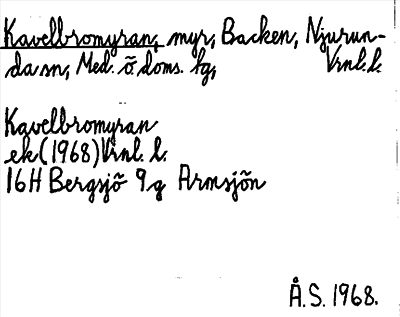 Kavelbromyran, myr, Backen, Njurun-
da sn, Med. ö doms. fg, Vrnl. l.
Kavelbromyran
ek (1968) Vrnl. l.
16H Bergsjö 9g Armsjön
Å.S. 1968.